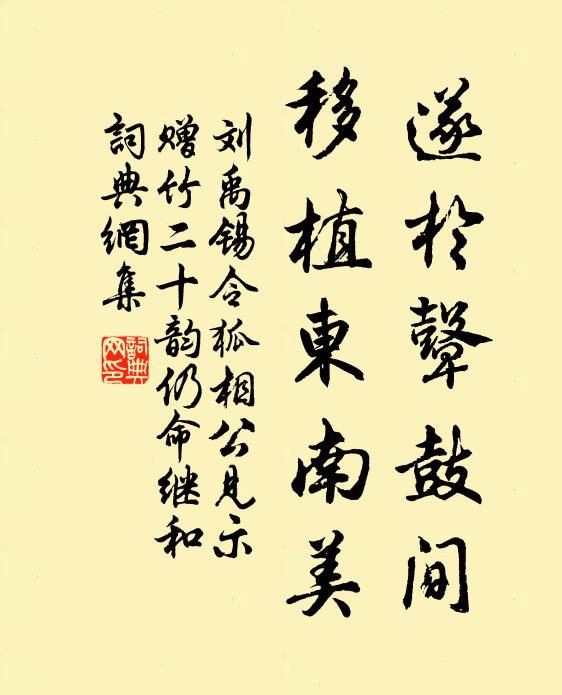 遂於鼙鼓间
移植東南美
刘禹锡令狐相公見示
赠竹二十韵仍命继和
詞典網集
詞典
网印